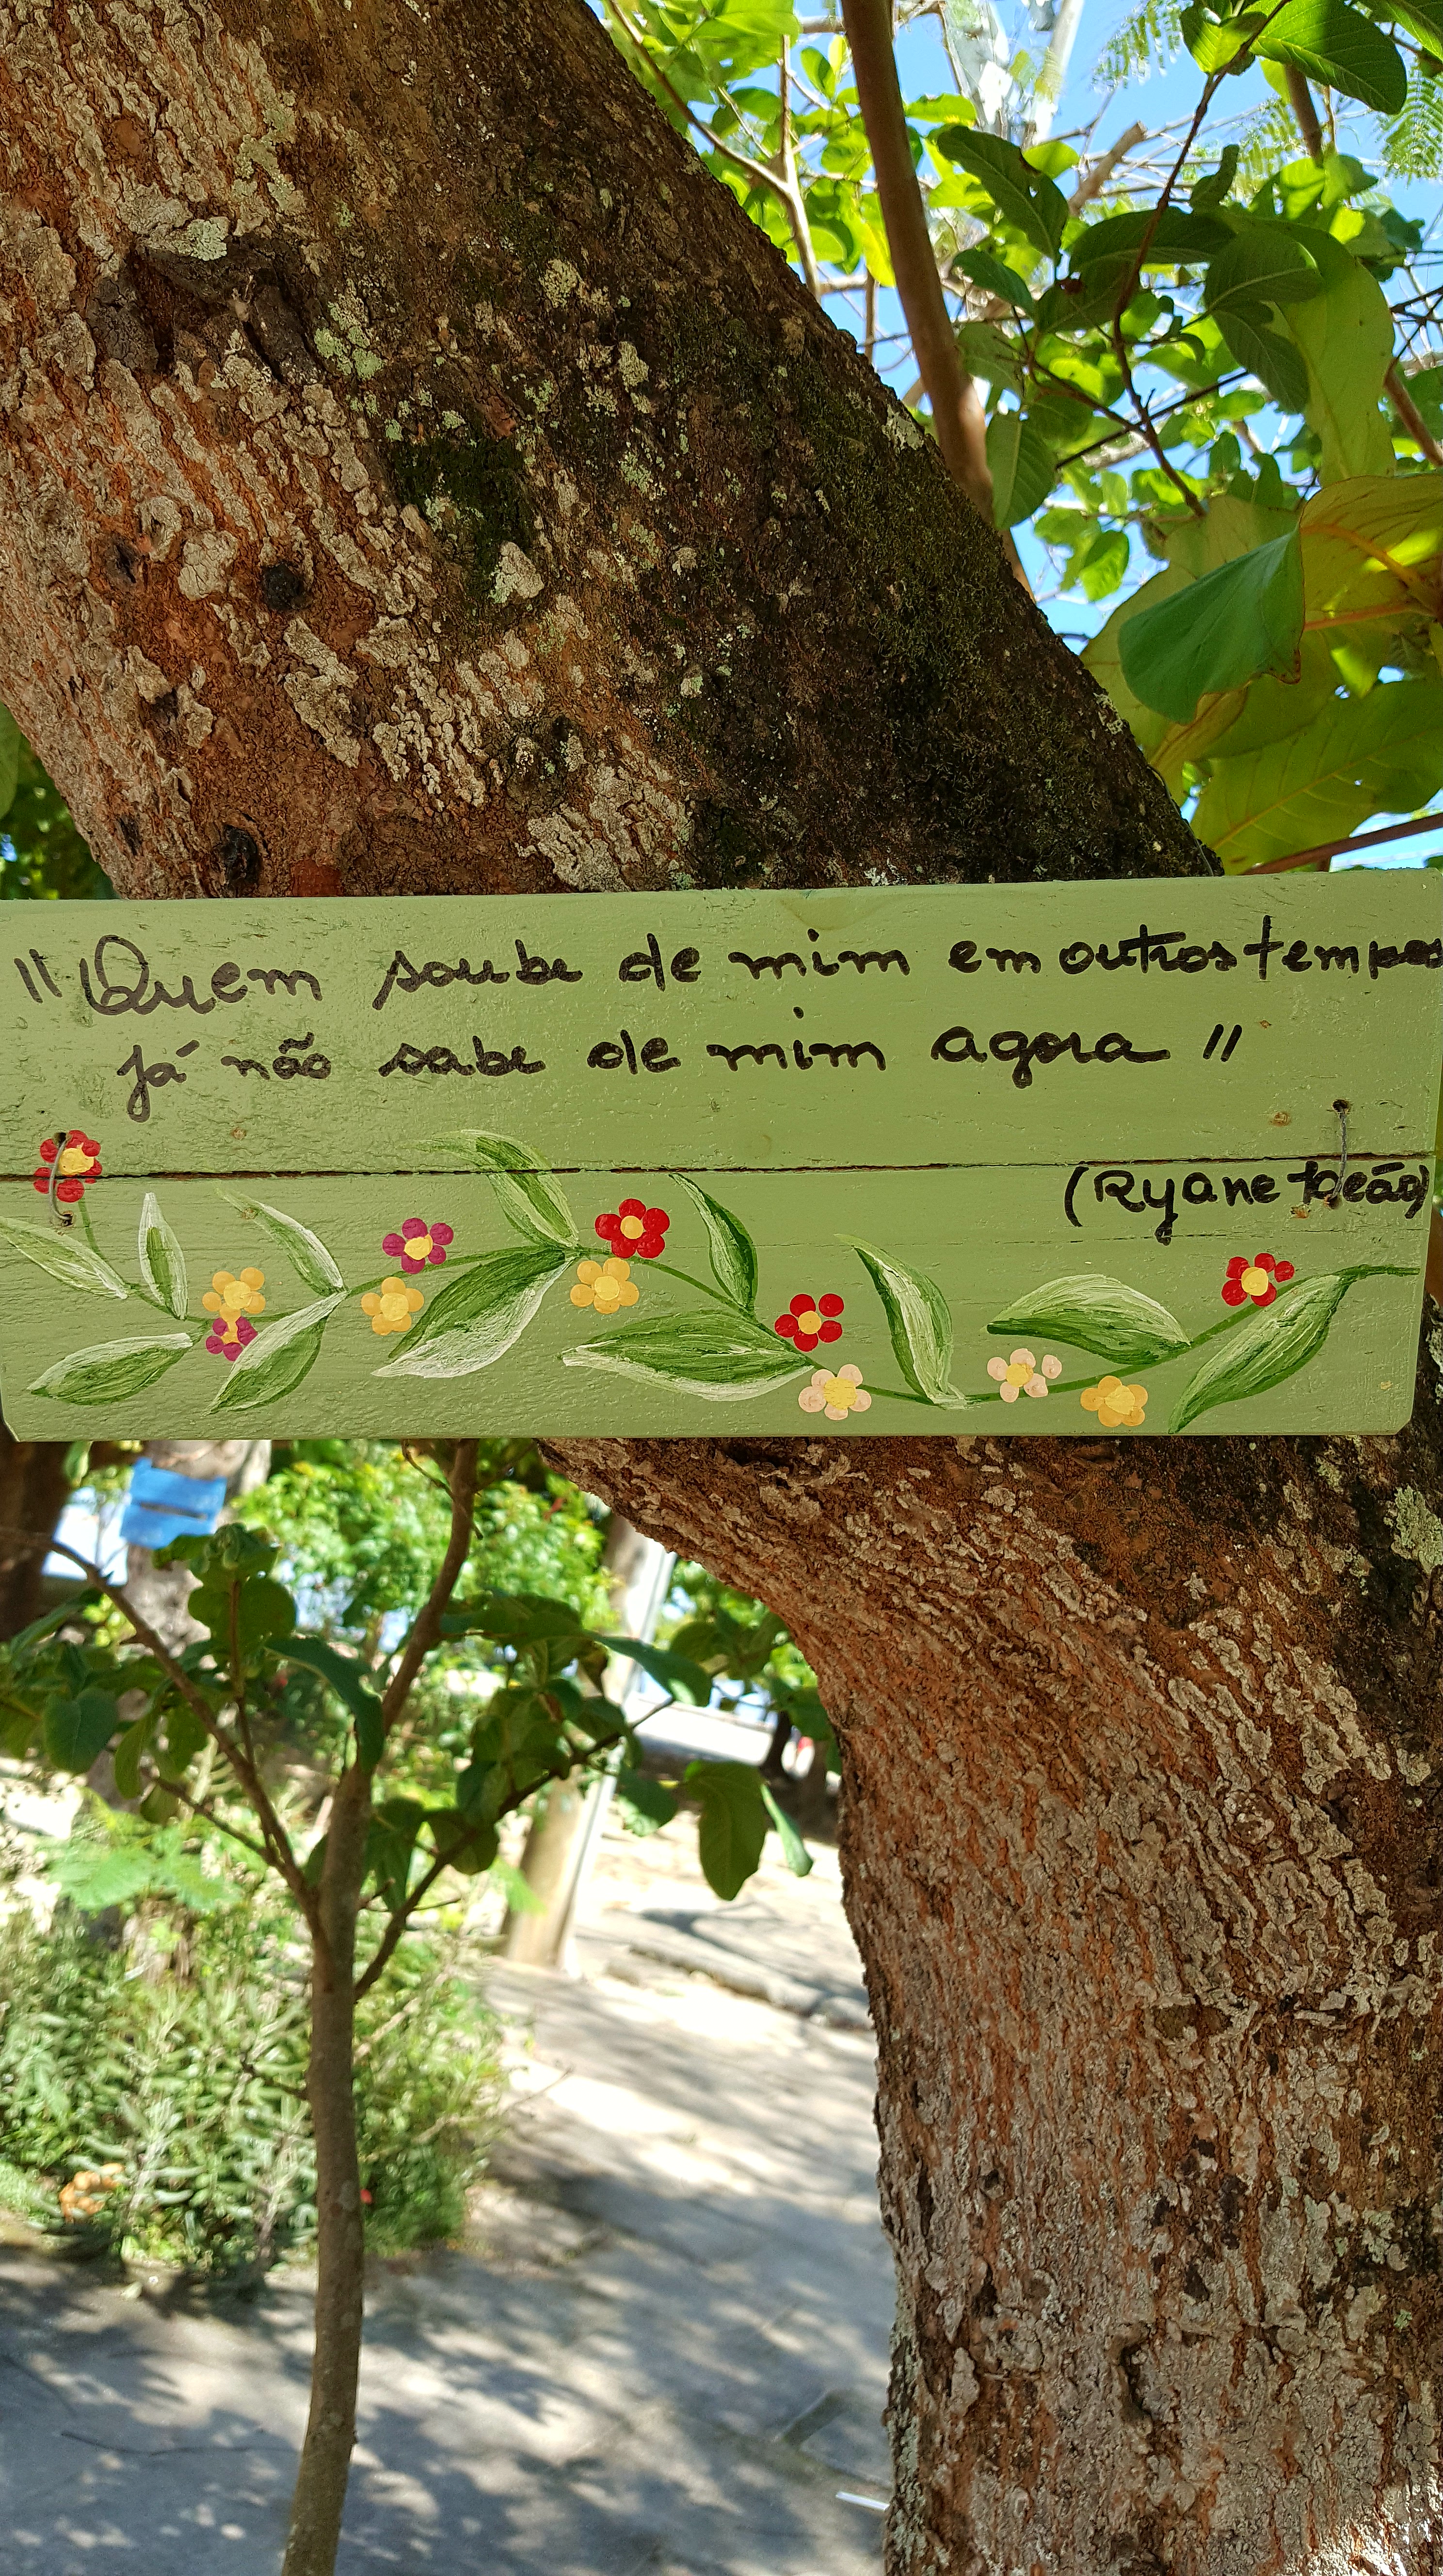 "Quem soube de mim em outros tempos
já não sabe de mim agora"
(Ryane Leão)